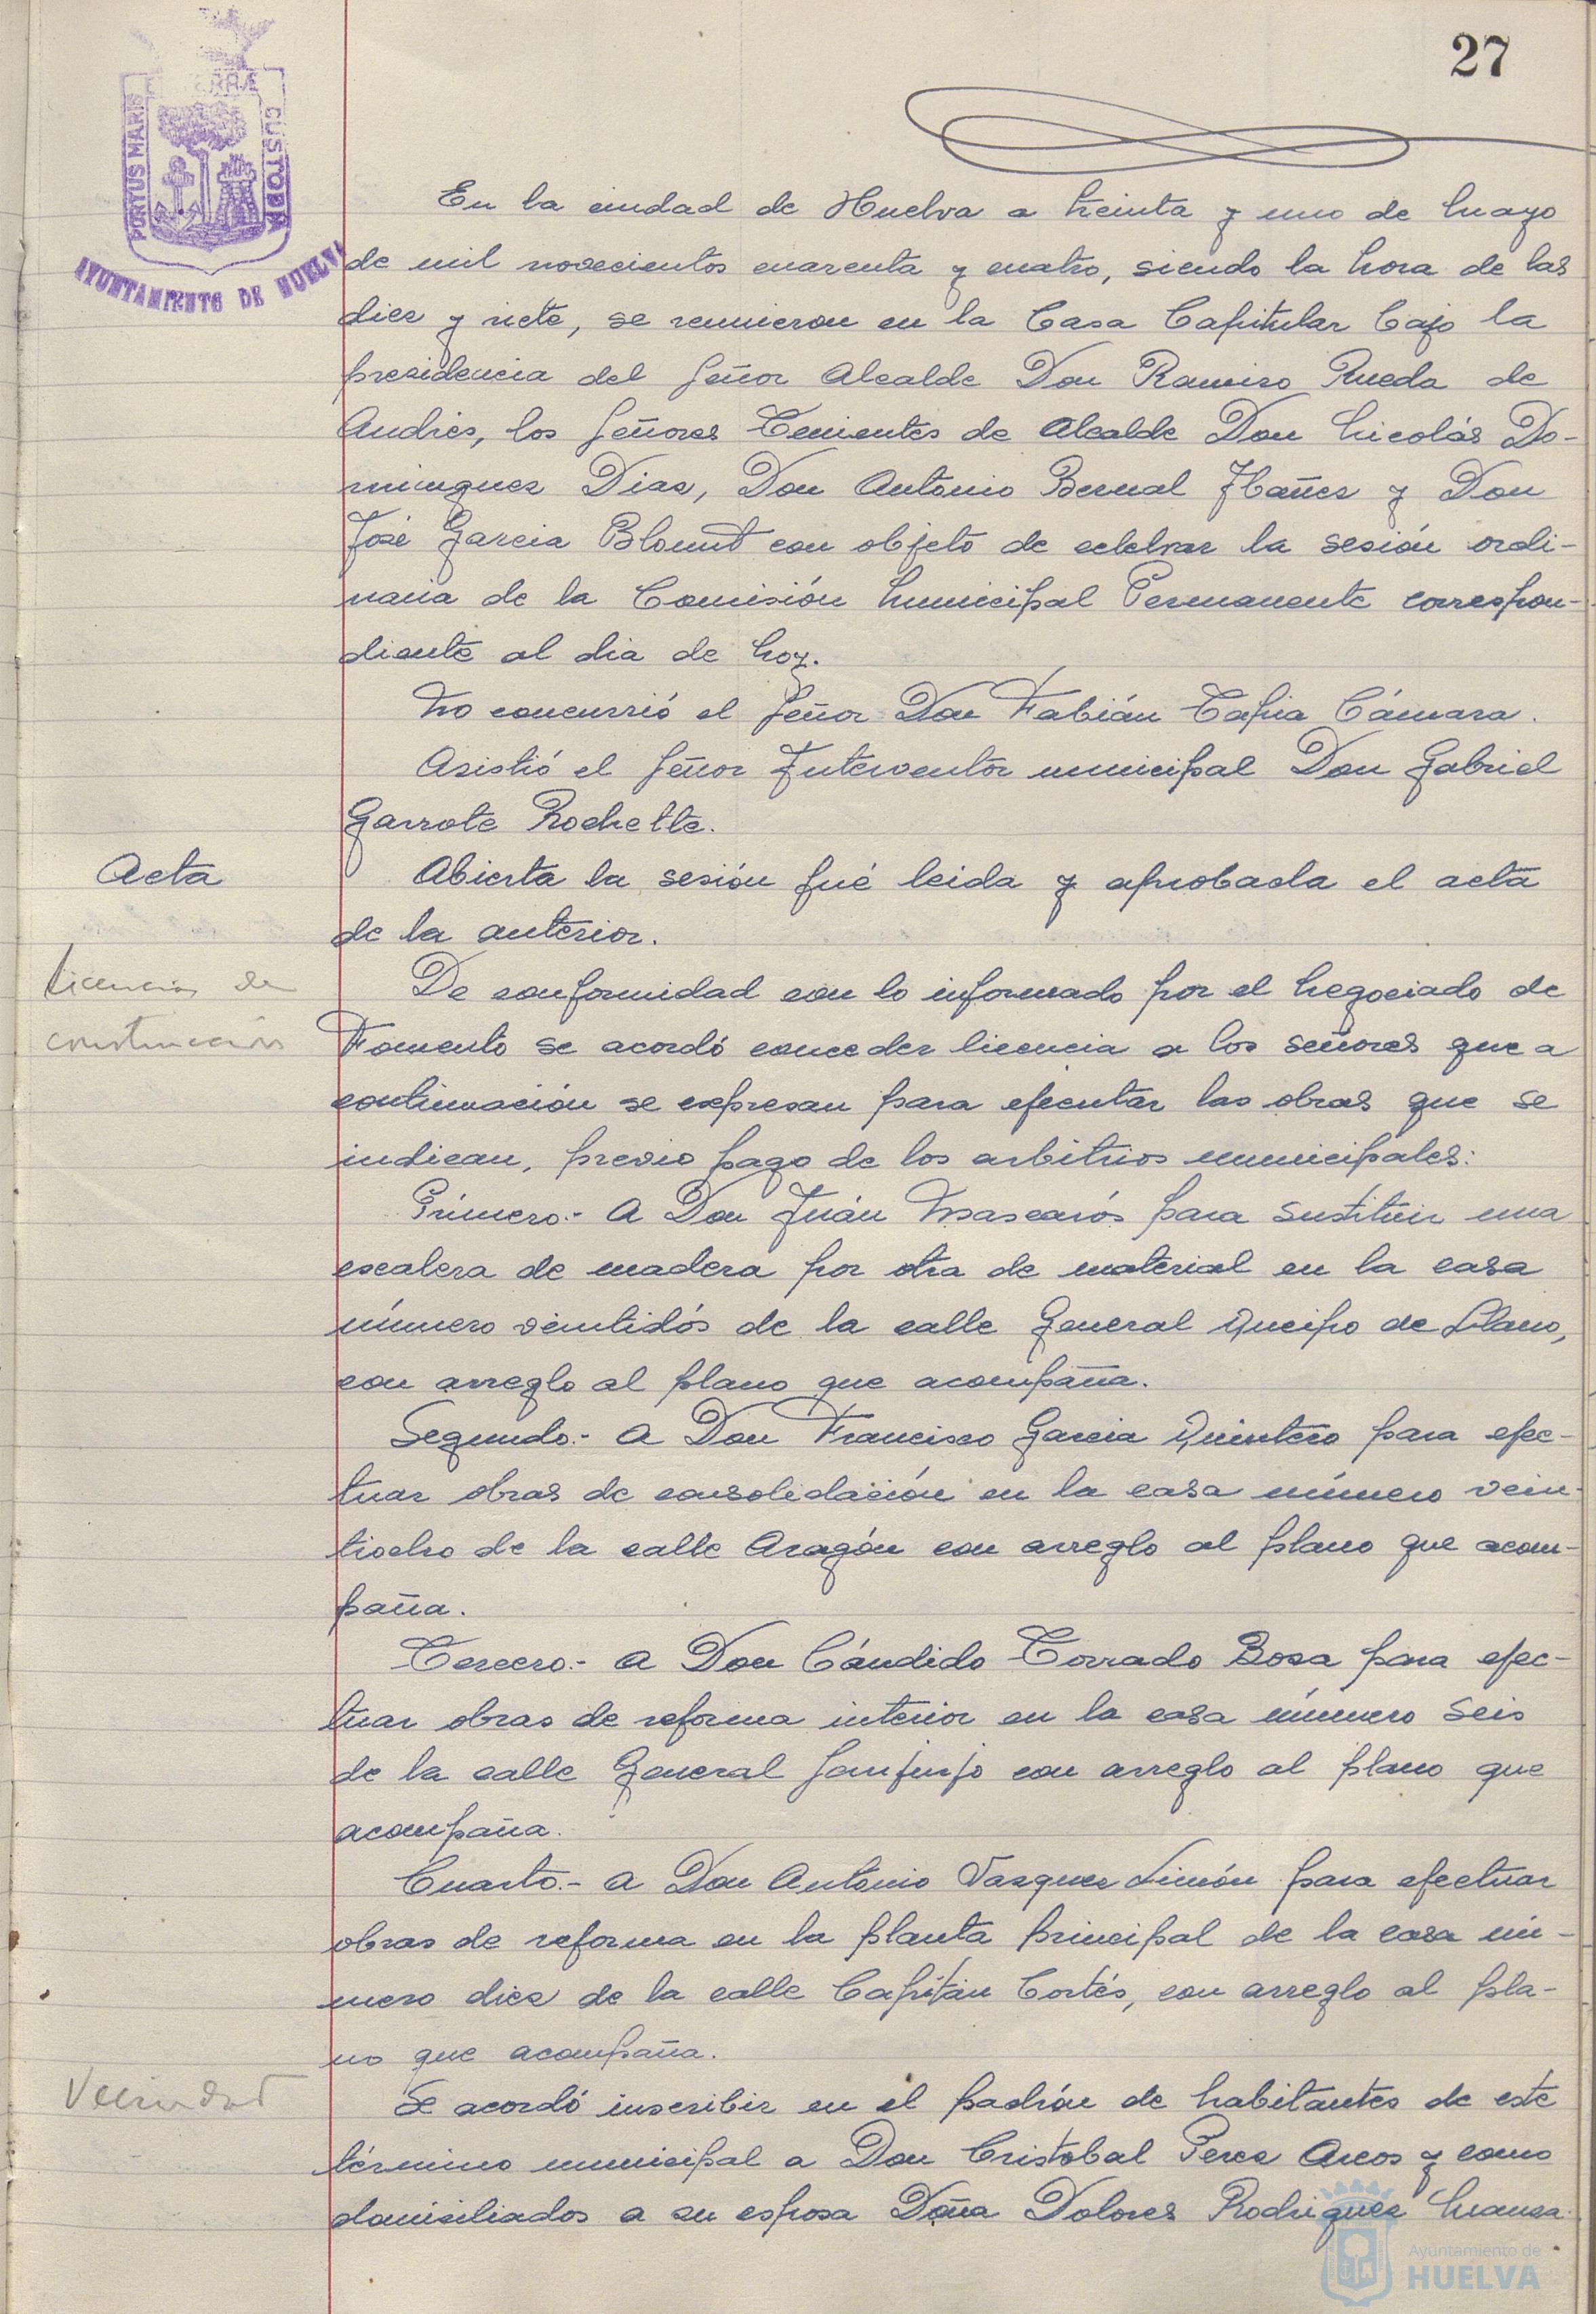 27
PORTUS MARIS
CUSTODIA
AYUNTAMIENTO DE HUELVA
En la ciudad de Huelva a treinta y uno de Mayo
de mil novecientos cuarenta y cuatro, siendo la hora de las
diez y siete, se reunieron en la Casa Capitular bajo la
presidencia del Señor Alcalde Don Ramiro Rueda de
Andrés, los Señores Tenientes de Alcalde Don Nicolás Do-
minguez Diaz, Don Antonio Bernal Ibañez y Don
José Garcia Blount con objeto de celebrar la sesión ordi-
naria de la Comisión Municipal Permanente correspon-
diente al dia de hoy.
No concurrió el Señor Don Fabián Tapia Cámara.
Asistió el Señor Interventor municipal Don Gabriel
Garrote Rochette.
Acta
Abierta la sesión fué leida y aprobada el acta
de la anterior.
Licencias de
construcción
De conformidad con lo informado por el Negociado de
Fomento se acordó conceder licencia a los señores que a
continuación se expresan para ejecutar las obras que se
indican, previo pago de los arbitrios municipales:
Primero.- A Don Juán Mascarós para sustituir una
escalera de madera por otra de material en la casa
número veintidós de la calle General Queipo de Llano,
con arreglo al plano que acompaña.
Segundo.- A Don Francisco Garcia Quintero para efec-
tuar obras de consolidación en la casa número vein-
tiocho de la calle Aragón con arreglo al plano que acom-
paña.
Tercero.- A Don Cándido Torrado Bosa para efec-
tuar obras de reforma interior en la casa número seis
de la calle General Sanjurjo con arreglo al plano que
acompaña.
Cuarto.- A Don Antonio Vazquez Limón para efectuar
obras de reforma en la planta principal de la casa nú-
mero diez de la calle Capitán Cortés, con arreglo al pla-
no que acompaña.
Vecindad
Se acordó inscribir en el padrón de habitantes de este
término municipal a Don Cristobal Perez Arcos y como
domiciliados a su esposa Doña Dolores Rodriguez Manza
Ayuntamiento de
HUELVA